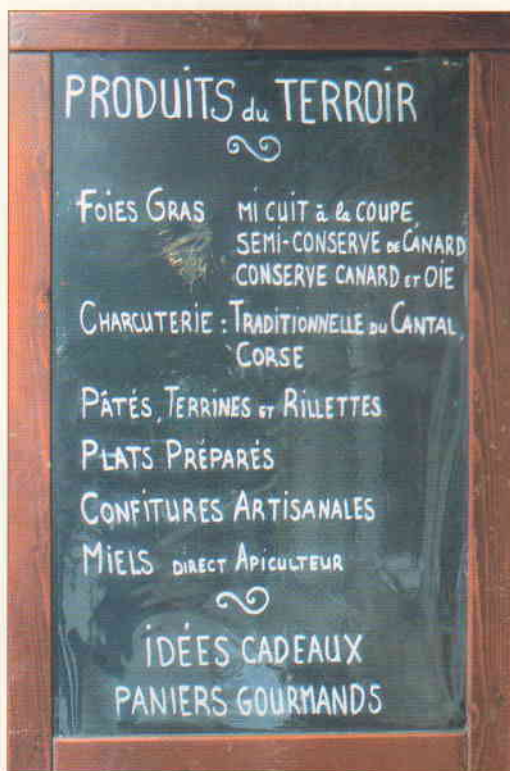 PRODUITS du TERROIR
FOIES GRAS MI CUIT à la COUPE,
SEMI-CONSERVE DE CANARD
CONSERVE CANARD ET OIE
CHARCUTERIE : TRADITIONNELLE DU CANTAL,
CORSE
PÂTÉS, TERRINES ET RILLETTES
PLATS PRÉPARÉS
CONFITURES ARTISANALES
MIELS DIRECT APICULTEUR
IDÉES CADEAUX
PANIERS GOURMANDS